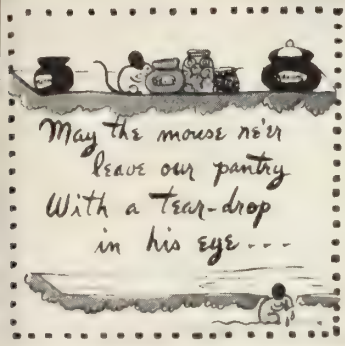 May the mouse ne'er
leave our pantry
With a tear-drop
in his eye ---